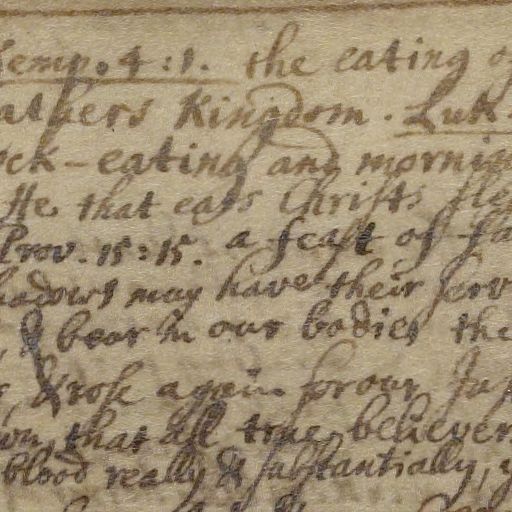 Kemp. 4:1. the eating of
athers Kingdom. Luk.
ock-eating and morning
He that eats Christs fle
Prov. 15:15. a feast of fa
hadows may have their serv
, & bear in our bodies the
, & rose again for our Jus
own, that all true believers
blood really & substantially, y